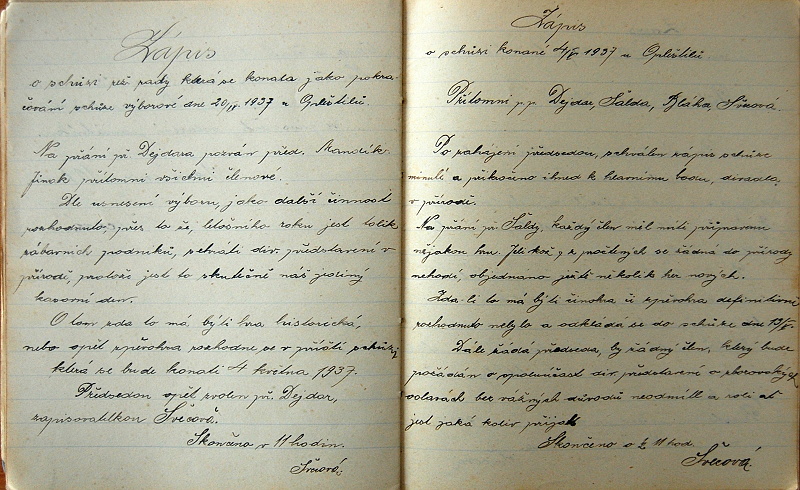 Zápis
o schůzi rež. rady která se konala jako pokra-
čování schůze výborové dne 20/IV. 1937 u Opletištilů.
Na přání př. Dejdara pozván před. Mandík.
Jinak přítomni všichni členové.
Dle usnesení výboru, jako další činnost
rozhodnuto, přes to že, letošního roku jest tolik
zábavních podniků, sehráti div. představení v
přírodě, protože jest to skutečně náš jediný
kasovní den.
O tom zda to má, býti hra historická,
nebo opět zpěvohra rozhodne, se v příští schůzi,
která se bude konati 4 května 1937.
Předsedou opět zvolen př. Dejdar,
zapisovatelkou Švecová.
Skončeno v 11 hodin.
Švecová.
Zápis
o schůzi konané 4/V. 1937 u
Přítomni p.p. Dejdar, Šálda, Bláha, Švecová
Po zahájení předsedou, schválen zápis schůze
minulé a přikročeno ihned k hlavnímu bodu, divadla,
v přírodě.
Na přání př. Šáldy, každý člen měl míti připravenu
nějakou hru. Jelikož, z počtených se žádná do přírody
nehodí, objednáno ještě několik her nových.
Zda-li to má býti činohra či zpěvohra definitivně
rozhodnuto nebylo a odkládá se do schůze dne
Dále žádá předseda, by žádný člen, který bude
požádán o spoluúčast div. představení a
oslavách bez vážných důvodů neodmítl a roli ať
jest jaká koliv přijal.
Skončeno o ½ 11 hod.
Švecová.